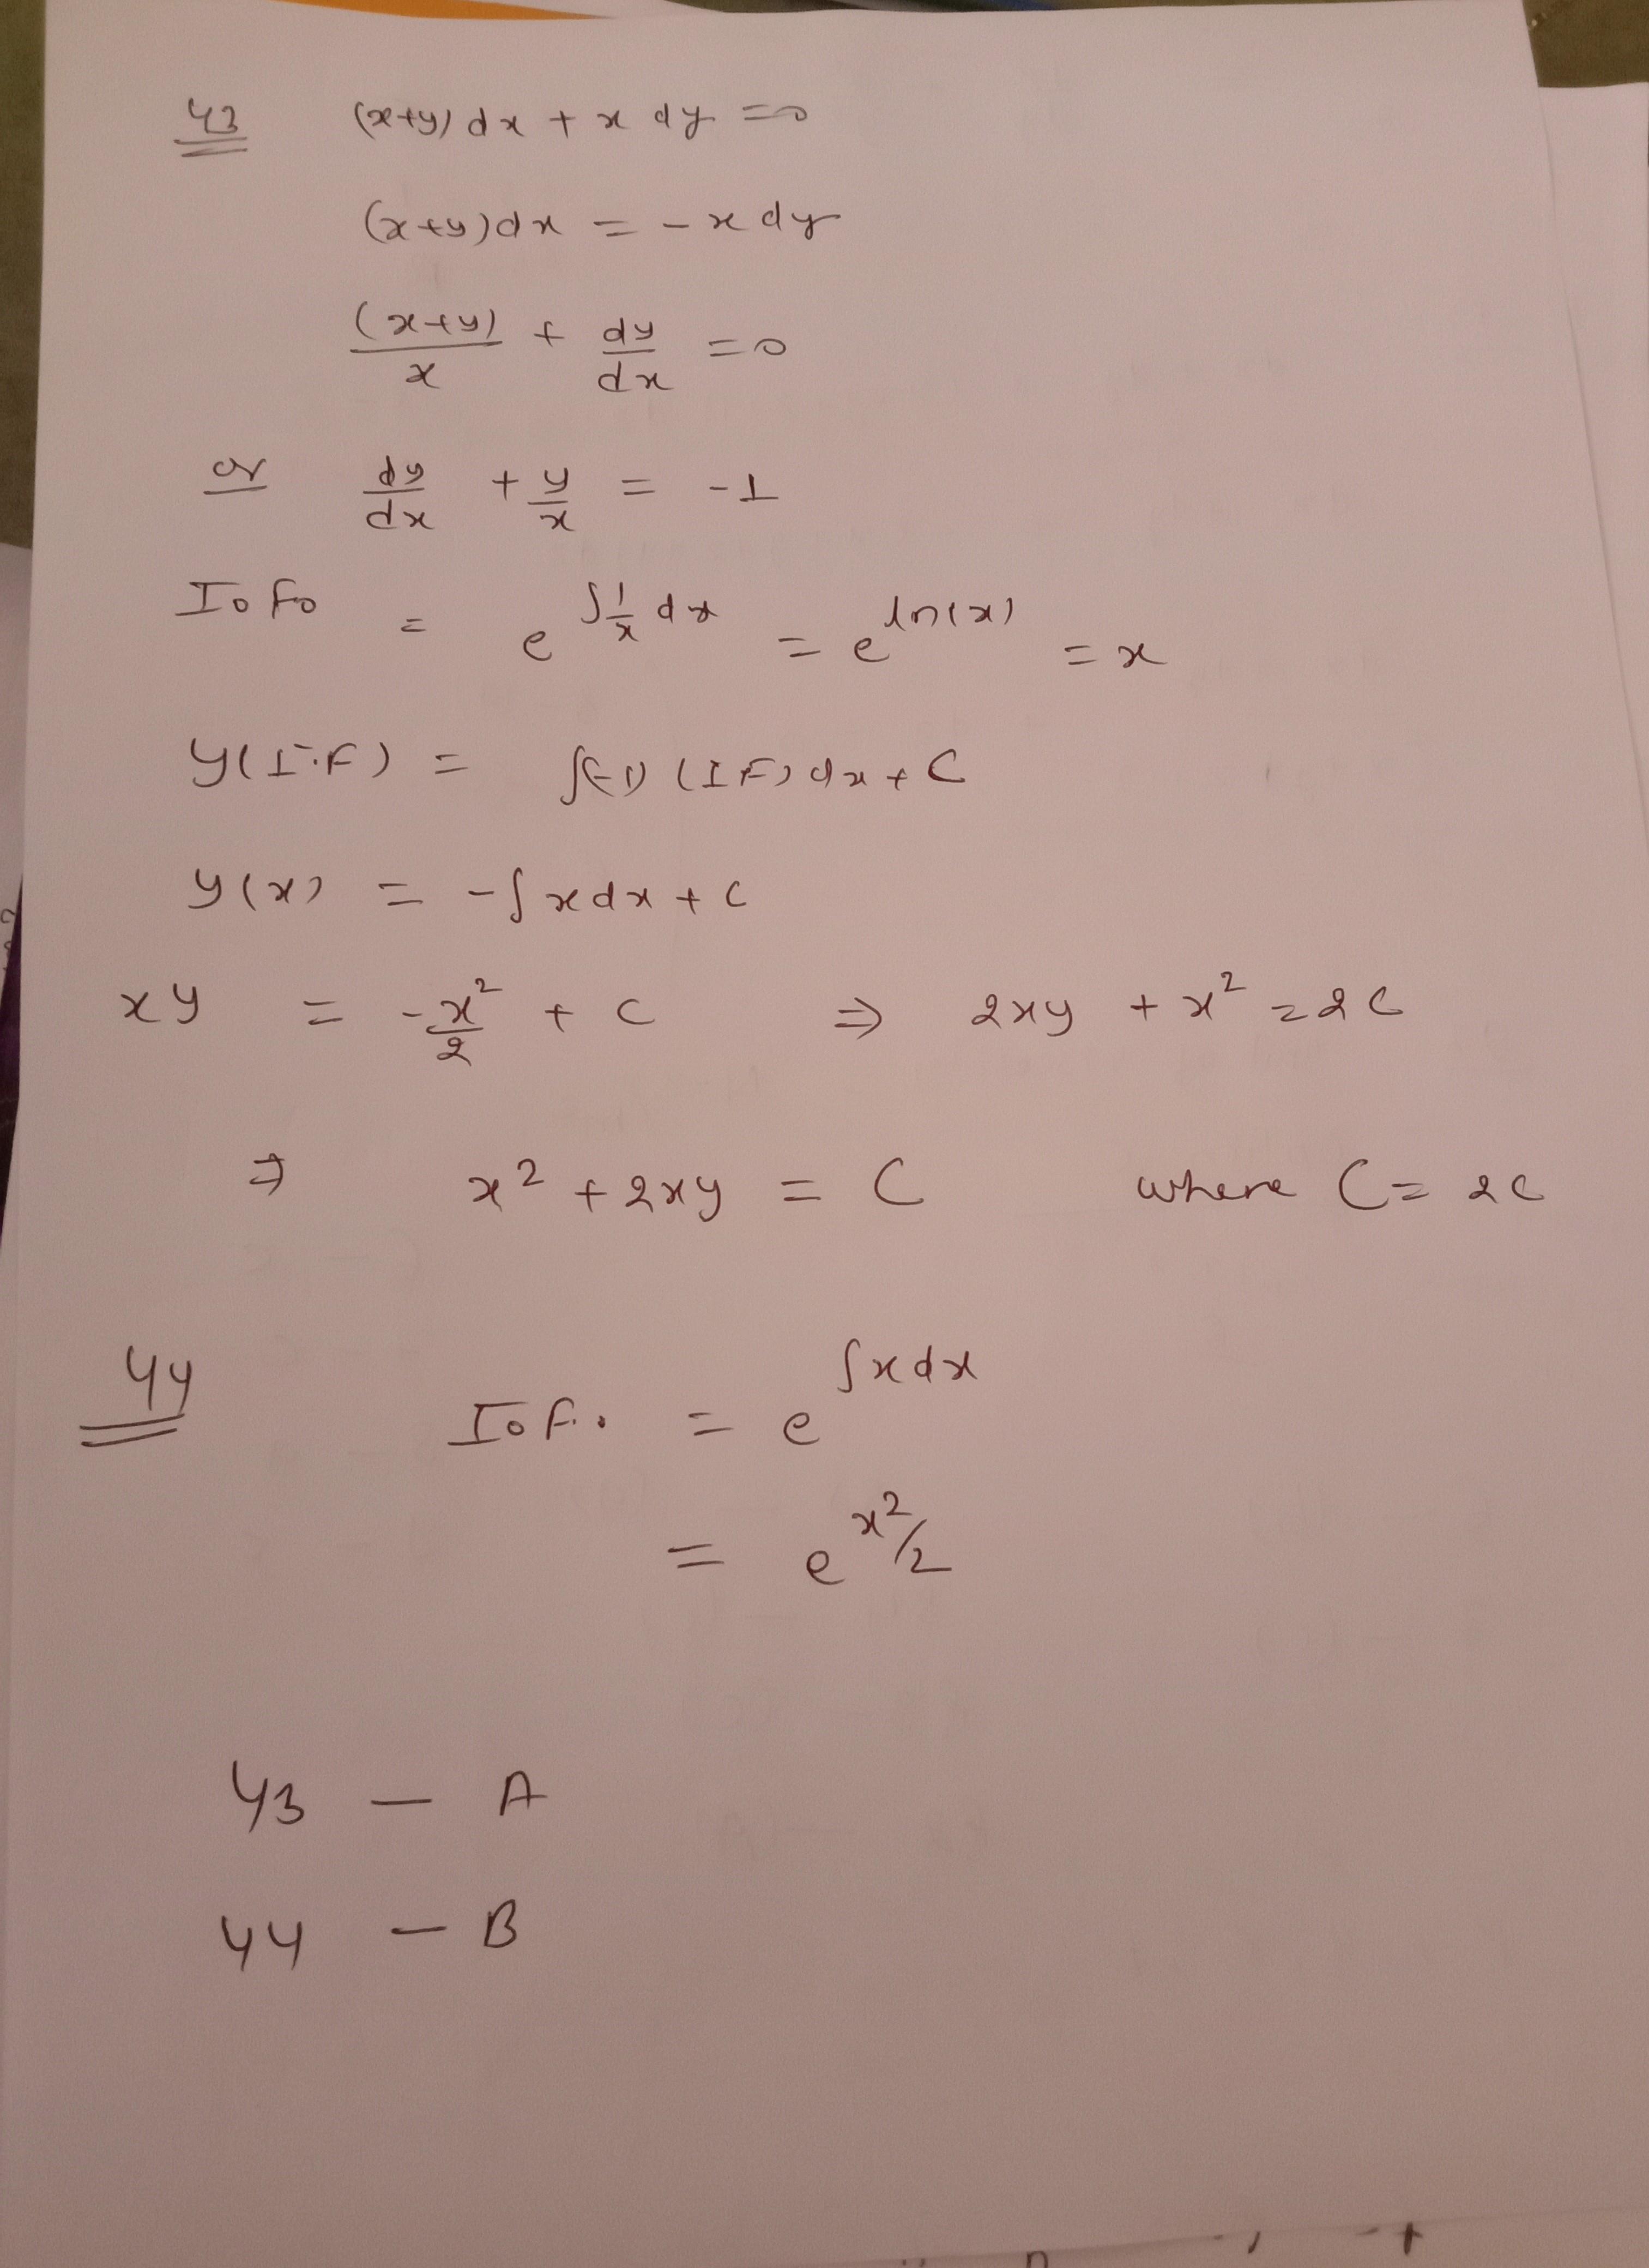 43 (x+y) dx + x dy = 0
(x+y)dx = - x dy
(x+y)/x + dy/dx = 0
or dy/dx + y/x = -1
I.F. = e^∫1/x dx = e^ln(x) = x
y(I.F) = ∫(-1) (IF) dx + C
y(x) = -∫xdx + c
xy = -x²/2 + c ⇒ 2xy + x² = 2c
⇒ x² + 2xy = C where C = 2c
44 I.F. = e^∫xdx
= e^x²/2
43 — A
44 — B